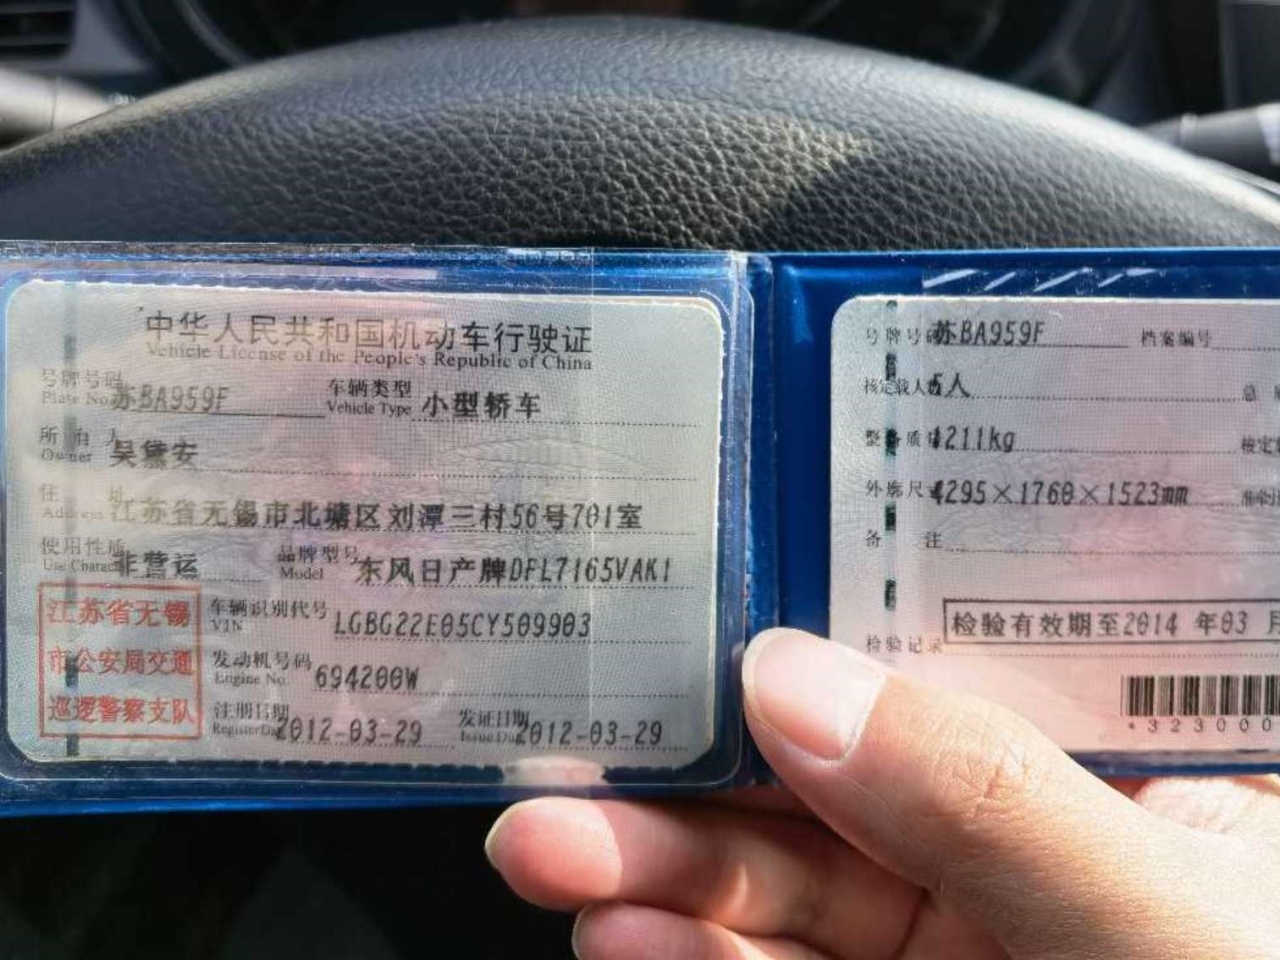 中华人民共和国机动车行驶证
Vehicle License of the People's Republic of China
号牌号码 苏BA959F 车辆类型 小型轿车
Plate No. Vehicle Type
所有人 吴黛安
Owner
住址 江苏省无锡市北塘区刘潭三村56号701室
Address
使用性质 非营运 品牌型号 东风日产牌DFL7165VAK1
Use Charac Model
江苏省无锡
市公安局交通
巡逻警察支队
车辆识别代号 LGBG22E05CY509903
VIN
发动机号码 694200W
Engine No.
注册日期 2012-03-29 发证日期 2012-03-29
Register Da Issue Da
号牌号码 苏BA959F 档案编号
核定载人数 5人 总
整备质量 1211kg 核定
外廓尺寸 4295×1760×1523mm 准牵
备注
检验有效期至2014 年03 月
检验记录
*323000